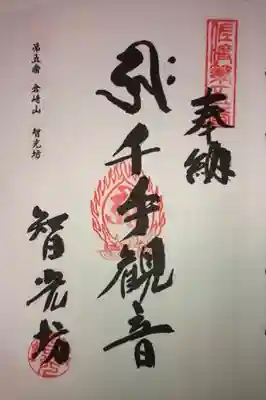 奉納
千手観音
智光坊
第五番 倉崎山 智光坊